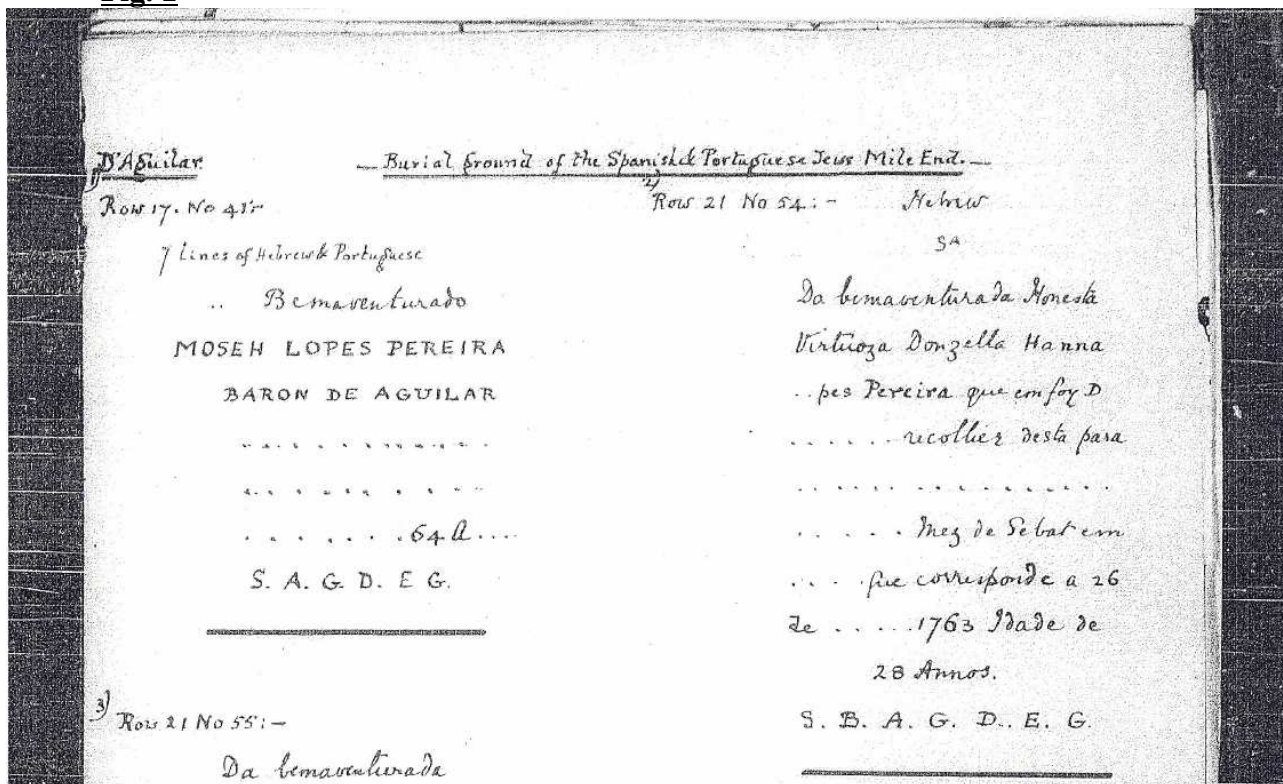 D'Aguilar.
— Burial Ground of the Spanish & Portuguese Jews Mile End. —
1)
Row 17. No 41:-
7 Lines of Hebrew & Portuguese
.. Bemaventurado
MOSEH LOPES PEREIRA
BARON DE AGUILAR
. . . . . . . . . .
. . . . . . . . . .
. . . . . . . 64 A....
S. A. G. D. E G.
2)
Row 21 No 54:- Hebrew
SA
Da bemaventurada Honesta
Virtuoza Donzella Hanna
..pes Pereira que em foy D
. . . . . . recolher desta para
. . . . . . . . . . . . . . . .
. . . . . Mez de Sebat em
. . . . que corresponde a 26
de . . . . . 1763 Idade de
28 Annos.
S. B. A. G. D.. E. G.
3)
Row 21 No 55:-
Da bemaventurada